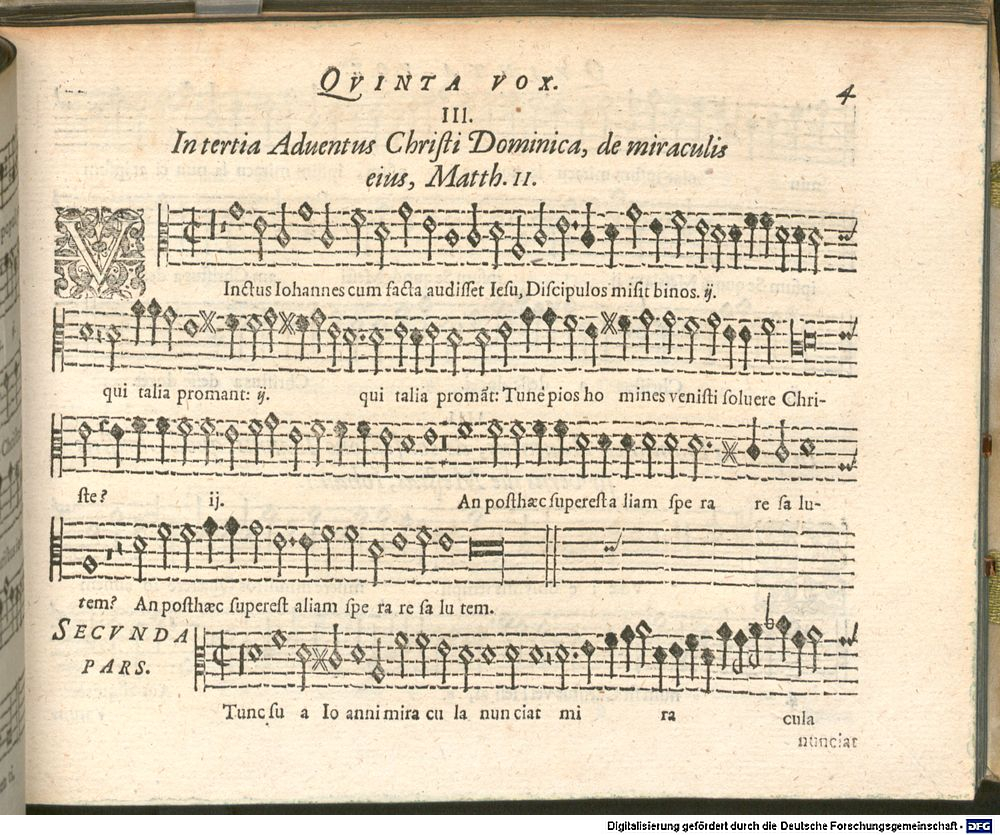 QVINTA VOX. 4
III.
In tertia Aduentus Chriſti Dominica, de miraculis
eius, Matth. II.
VInctus Iohannes cum facta audiſſet Ieſu, Diſcipulos miſit binos. ij.
qui talia promant: ij. qui talia promãt: Tune pios ho mines veniſti ſoluere Chri-
ſte? ij. An poſthæc ſupereſt a liam ſpe ra re ſa lu-
tem? An poſthæc ſupereſt aliam ſpe ra re ſa lu tem.
SECVNDA
PARS.
Tunc ſu a Io anni mira cu la nun ciat mi ra cula
nunciat
Digitalisierung gefördert durch die Deutsche Forschungsgemeinschaft - DFG